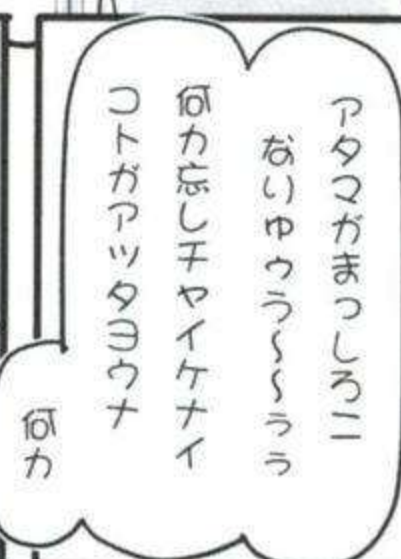 アタマがまっしろニ
なりゅゥう〜〜ぅぅ
何カ忘レチャイケナイ
コトガアッタヨウナ
何カ